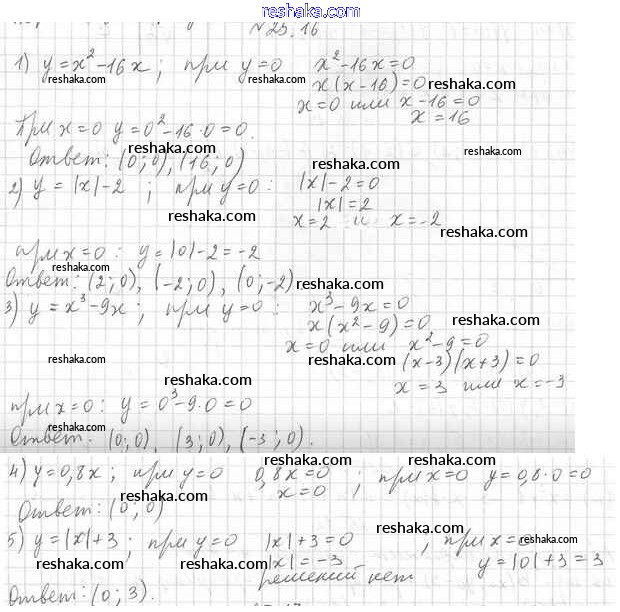 www.reshaka.com
№25.16
1) y=x²-16x; при y=0 x²-16x=0
reshaka.com reshaka.com
x(x-16)=0 reshaka.com
x=0 или x-16=0
x=16
При x=0 y=0²-16·0=0.
reshaka.com
Ответ: (0;0), (16;0) reshaka.com
2) y=|x|-2; при y=0: |x|-2=0
reshaka.com |x|=2
reshaka.com x=2 и x=-2
reshaka.com
при x=0: y=|0|-2=-2
reshaka.com
Ответ: (2;0), (-2;0), (0;-2) reshaka.com
3) y=x³-9x; при y=0: x³-9x=0
reshaka.com x(x²-9)=0 reshaka.com
x=0 или x²-9=0
reshaka.com reshaka.com (x-3)(x+3)=0
reshaka.com x=3 или x=-3
reshaka.com
при x=0: y=0³-9·0=0
reshaka.com
Ответ: (0;0), (3;0), (-3;0).
reshaka.com reshaka.com
4) y=0,8x; при y=0 0,8x=0; при x=0 y=0,8·0=0
reshaka.com x=0 reshaka.com
Ответ: (0;0)
reshaka.com
5) y=|x|+3; при y=0 |x|+3=0, при x=0
reshaka.com
reshaka.com reshaka.com |x|=-3 y=|0|+3=3
решений нет
reshaka.com
Ответ: (0;3).
reshaka.com